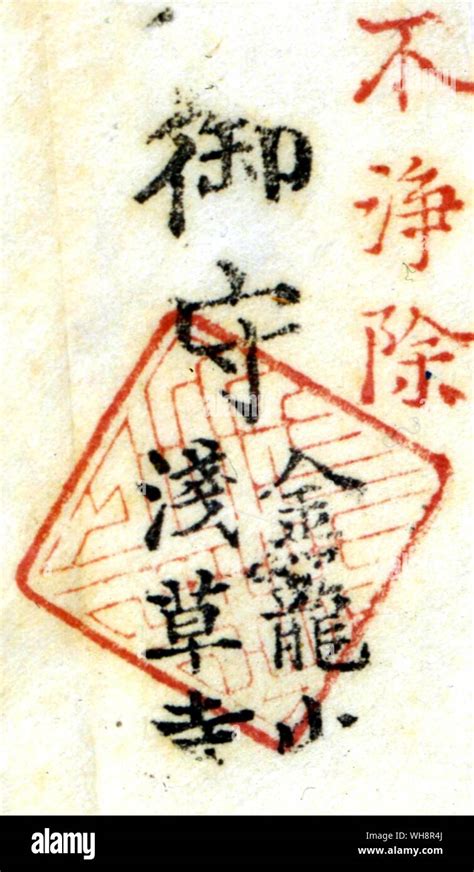 不浄除
御守
金龍山
淺草寺
alamy
Image ID: MH8R4J
www.alamy.com